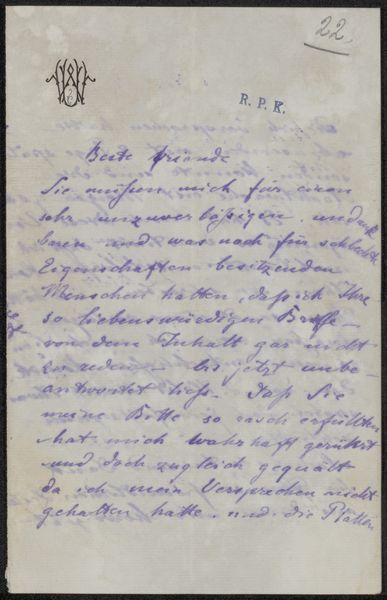 22
R. P. K.
Beste Freunde
Sie müßen mich für einen
sehr unzuverläßigen, undank
baren und was noch für schlechte
Eigenschaften besitzenden
Menschen halten, daß ich Ihre
so liebenswürdigen Briefe –
von dem Inhalt gar nicht
zu reden – bis jetzt unbe-
antwortet ließ. Daß Sie
meine Bitte so rasch erfüllten
hat mich wahrhaft gerührt
und doch zugleich gequält
da ich mein Versprechen nicht
gehalten hatte. und die Platten